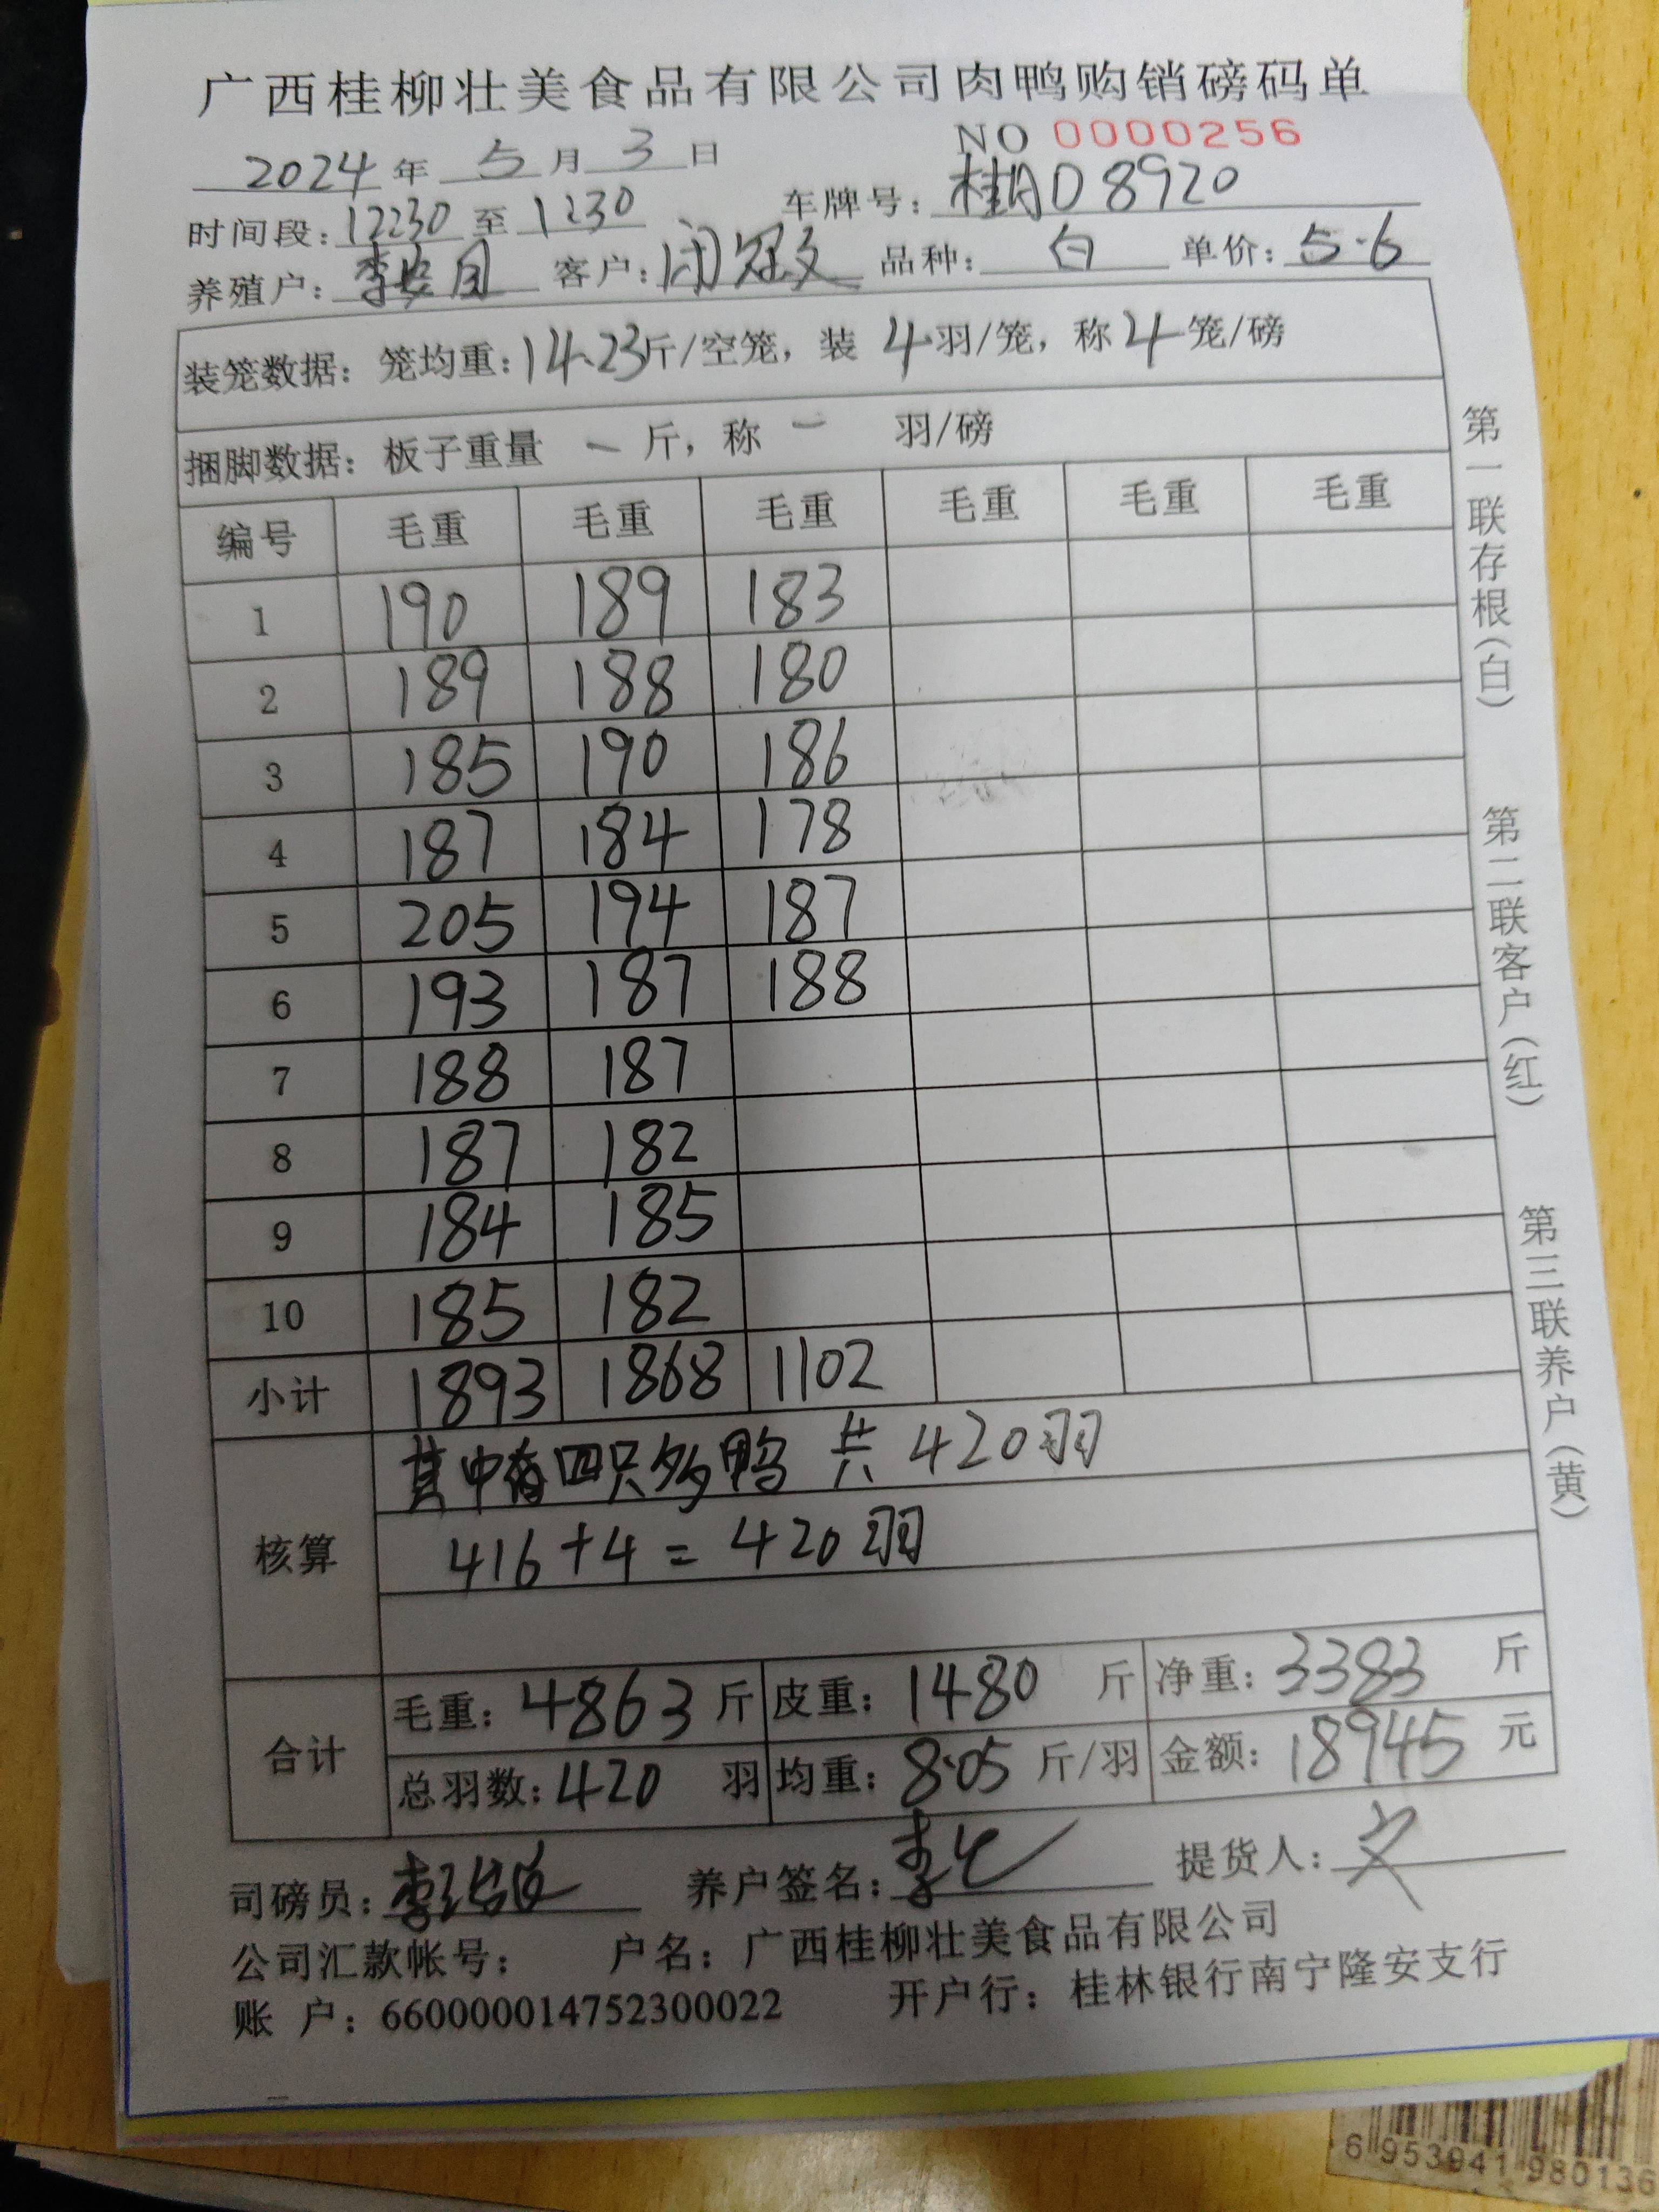 广西桂柳壮美食品有限公司肉鸭购销磅码单
NO 0000256
2024 年 5 月 3 日
时间段：12230 至 1230 车牌号：桂AD8920
养殖户：李 客户：闭冠文 品种：白 单价：5.6
装笼数据：笼均重：14.23斤/空笼，装 4 羽/笼，称 4 笼/磅
捆脚数据：板子重量 一 斤，称 一 羽/磅
编号 毛重 毛重 毛重 毛重 毛重 毛重
1 190 189 183
2 189 188 180
3 185 190 186
4 187 184 178
5 205 194 187
6 193 187 188
7 188 187
8 187 182
9 184 185
10 185 182
小计 1893 1868 1102
核算 其中有四只多鸭 共 420羽
416+4=420羽
合计 毛重：4863 斤 皮重：1480 斤 净重：3383 斤
总羽数：420 羽 均重：8.05 斤/羽 金额：18945 元
司磅员：李 养户签名：李 提货人：文
公司汇款帐号： 户名：广西桂柳壮美食品有限公司
账 户：660000014752300022 开户行：桂林银行南宁隆安支行
第一联存根（白） 第二联客户（红） 第三联养户（黄）
6 953941 980136